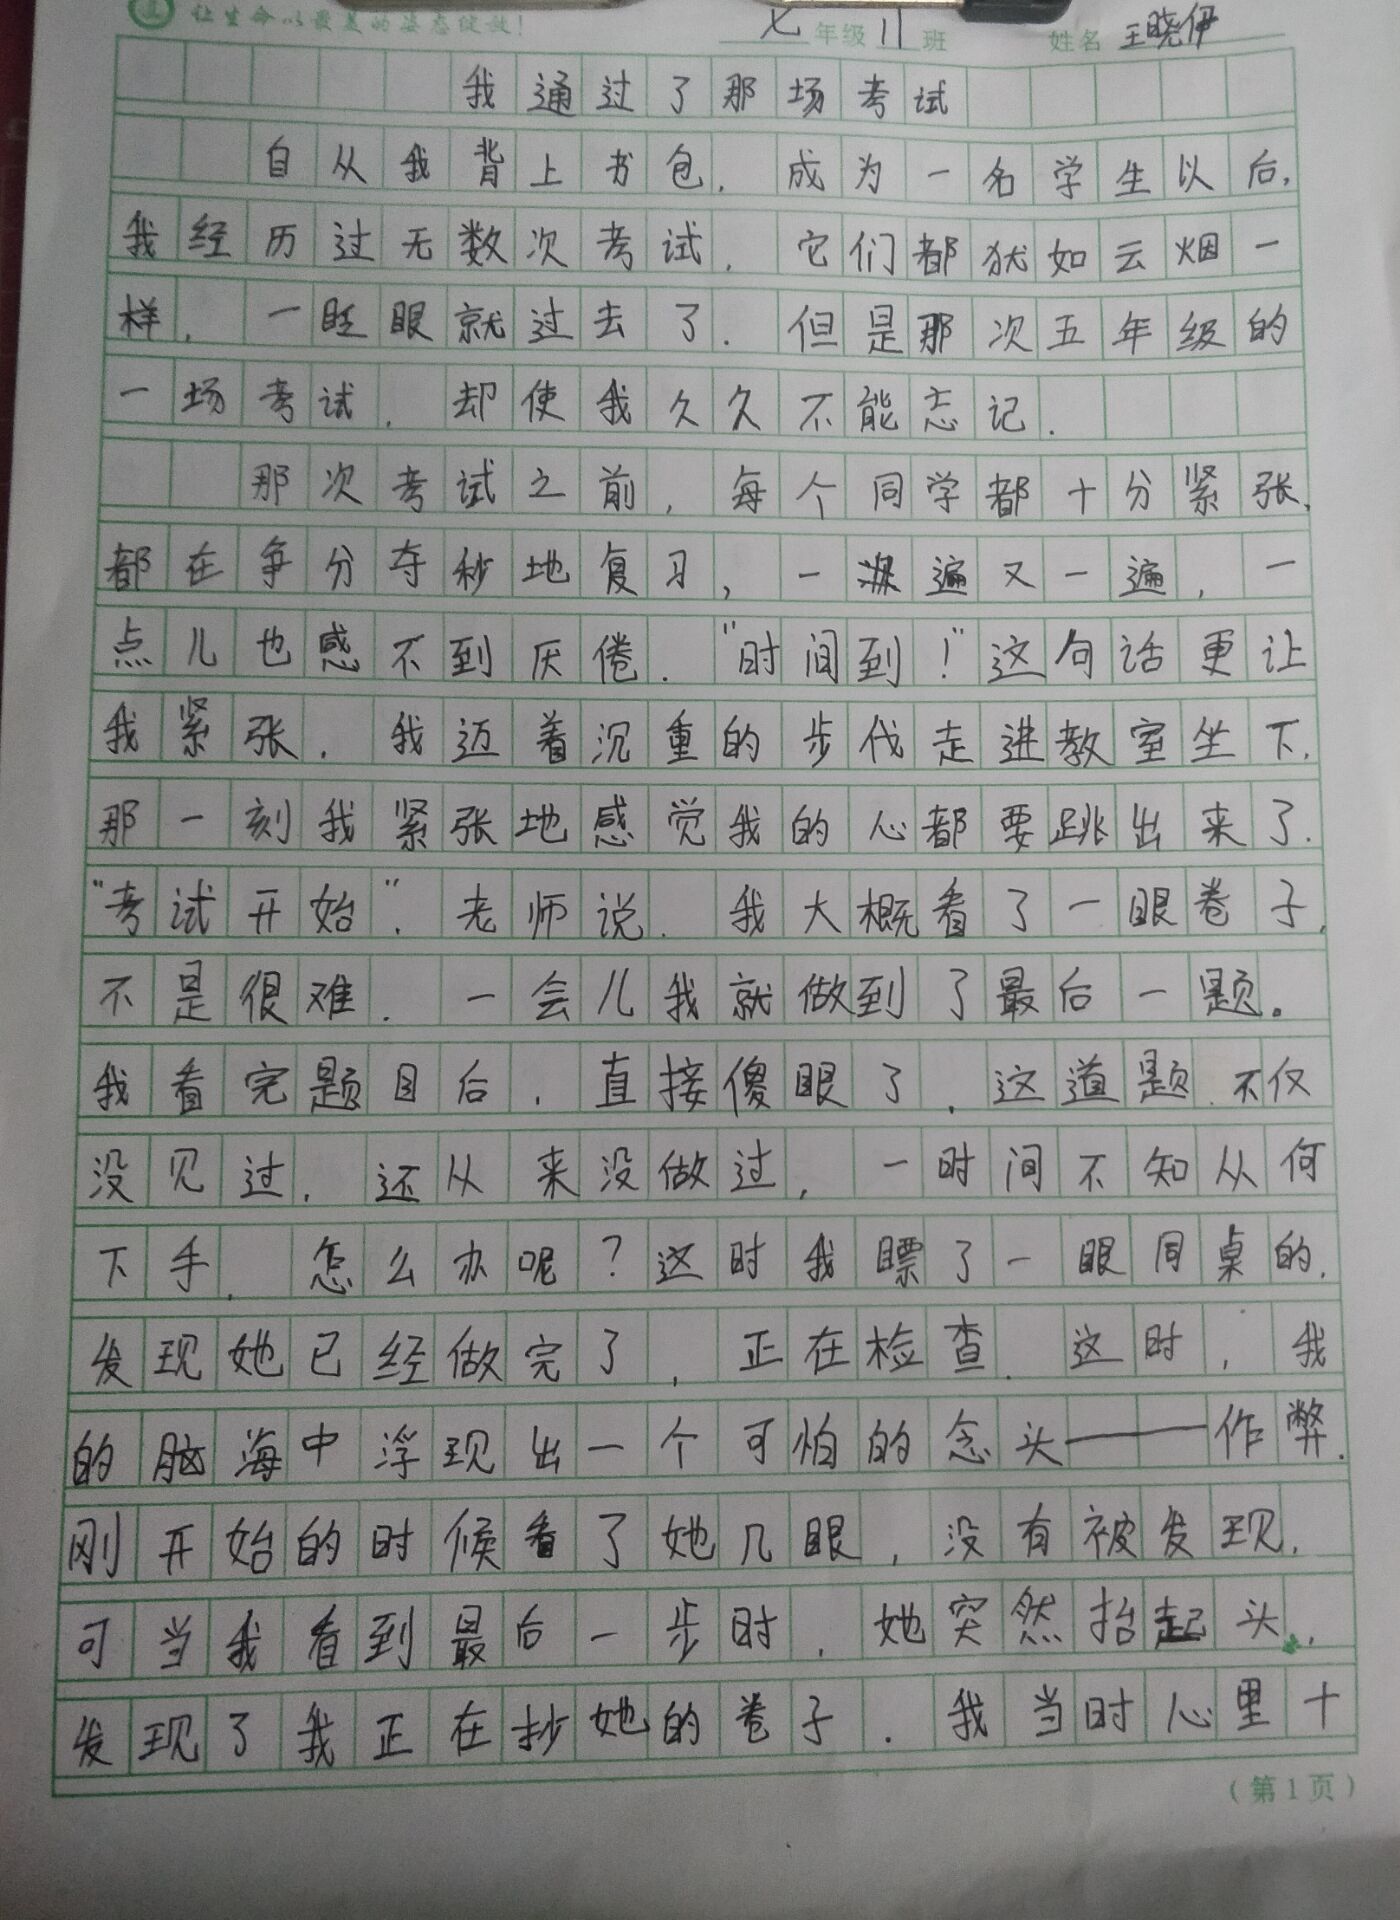 让生命以最美的姿态绽放!
七年级 11 班 姓名 王晓伊
我通过了那场考试
自从我背上书包,成为一名学生以后,
我经历过无数次考试,它们都犹如云烟一
样,一眨眼就过去了.但是那次五年级的
一场考试,却使我久久不能忘记.
那次考试之前,每个同学都十分紧张,
都在争分夺秒地复习,一遍又一遍,一
点儿也感不到厌倦."时间到!"这句话更让
我紧张.我迈着沉重的步伐走进教室坐下,
那一刻我紧张地感觉我的心都要跳出来了.
"考试开始".老师说.我大概看了一眼卷子,
不是很难.一会儿我就做到了最后一题。
我看完题目后,直接傻眼了.这道题不仅
没见过,还从来没做过,一时间不知从何
下手.怎么办呢?这时我瞟了一眼同桌的,
发现她已经做完了,正在检查.这时,我
的脑海中浮现出一个可怕的念头——作弊.
刚开始的时候看了她几眼,没有被发现,
可当我看到最后一步时,她突然抬起头,
发现了我正在抄她的卷子.我当时心里十
(第1页)